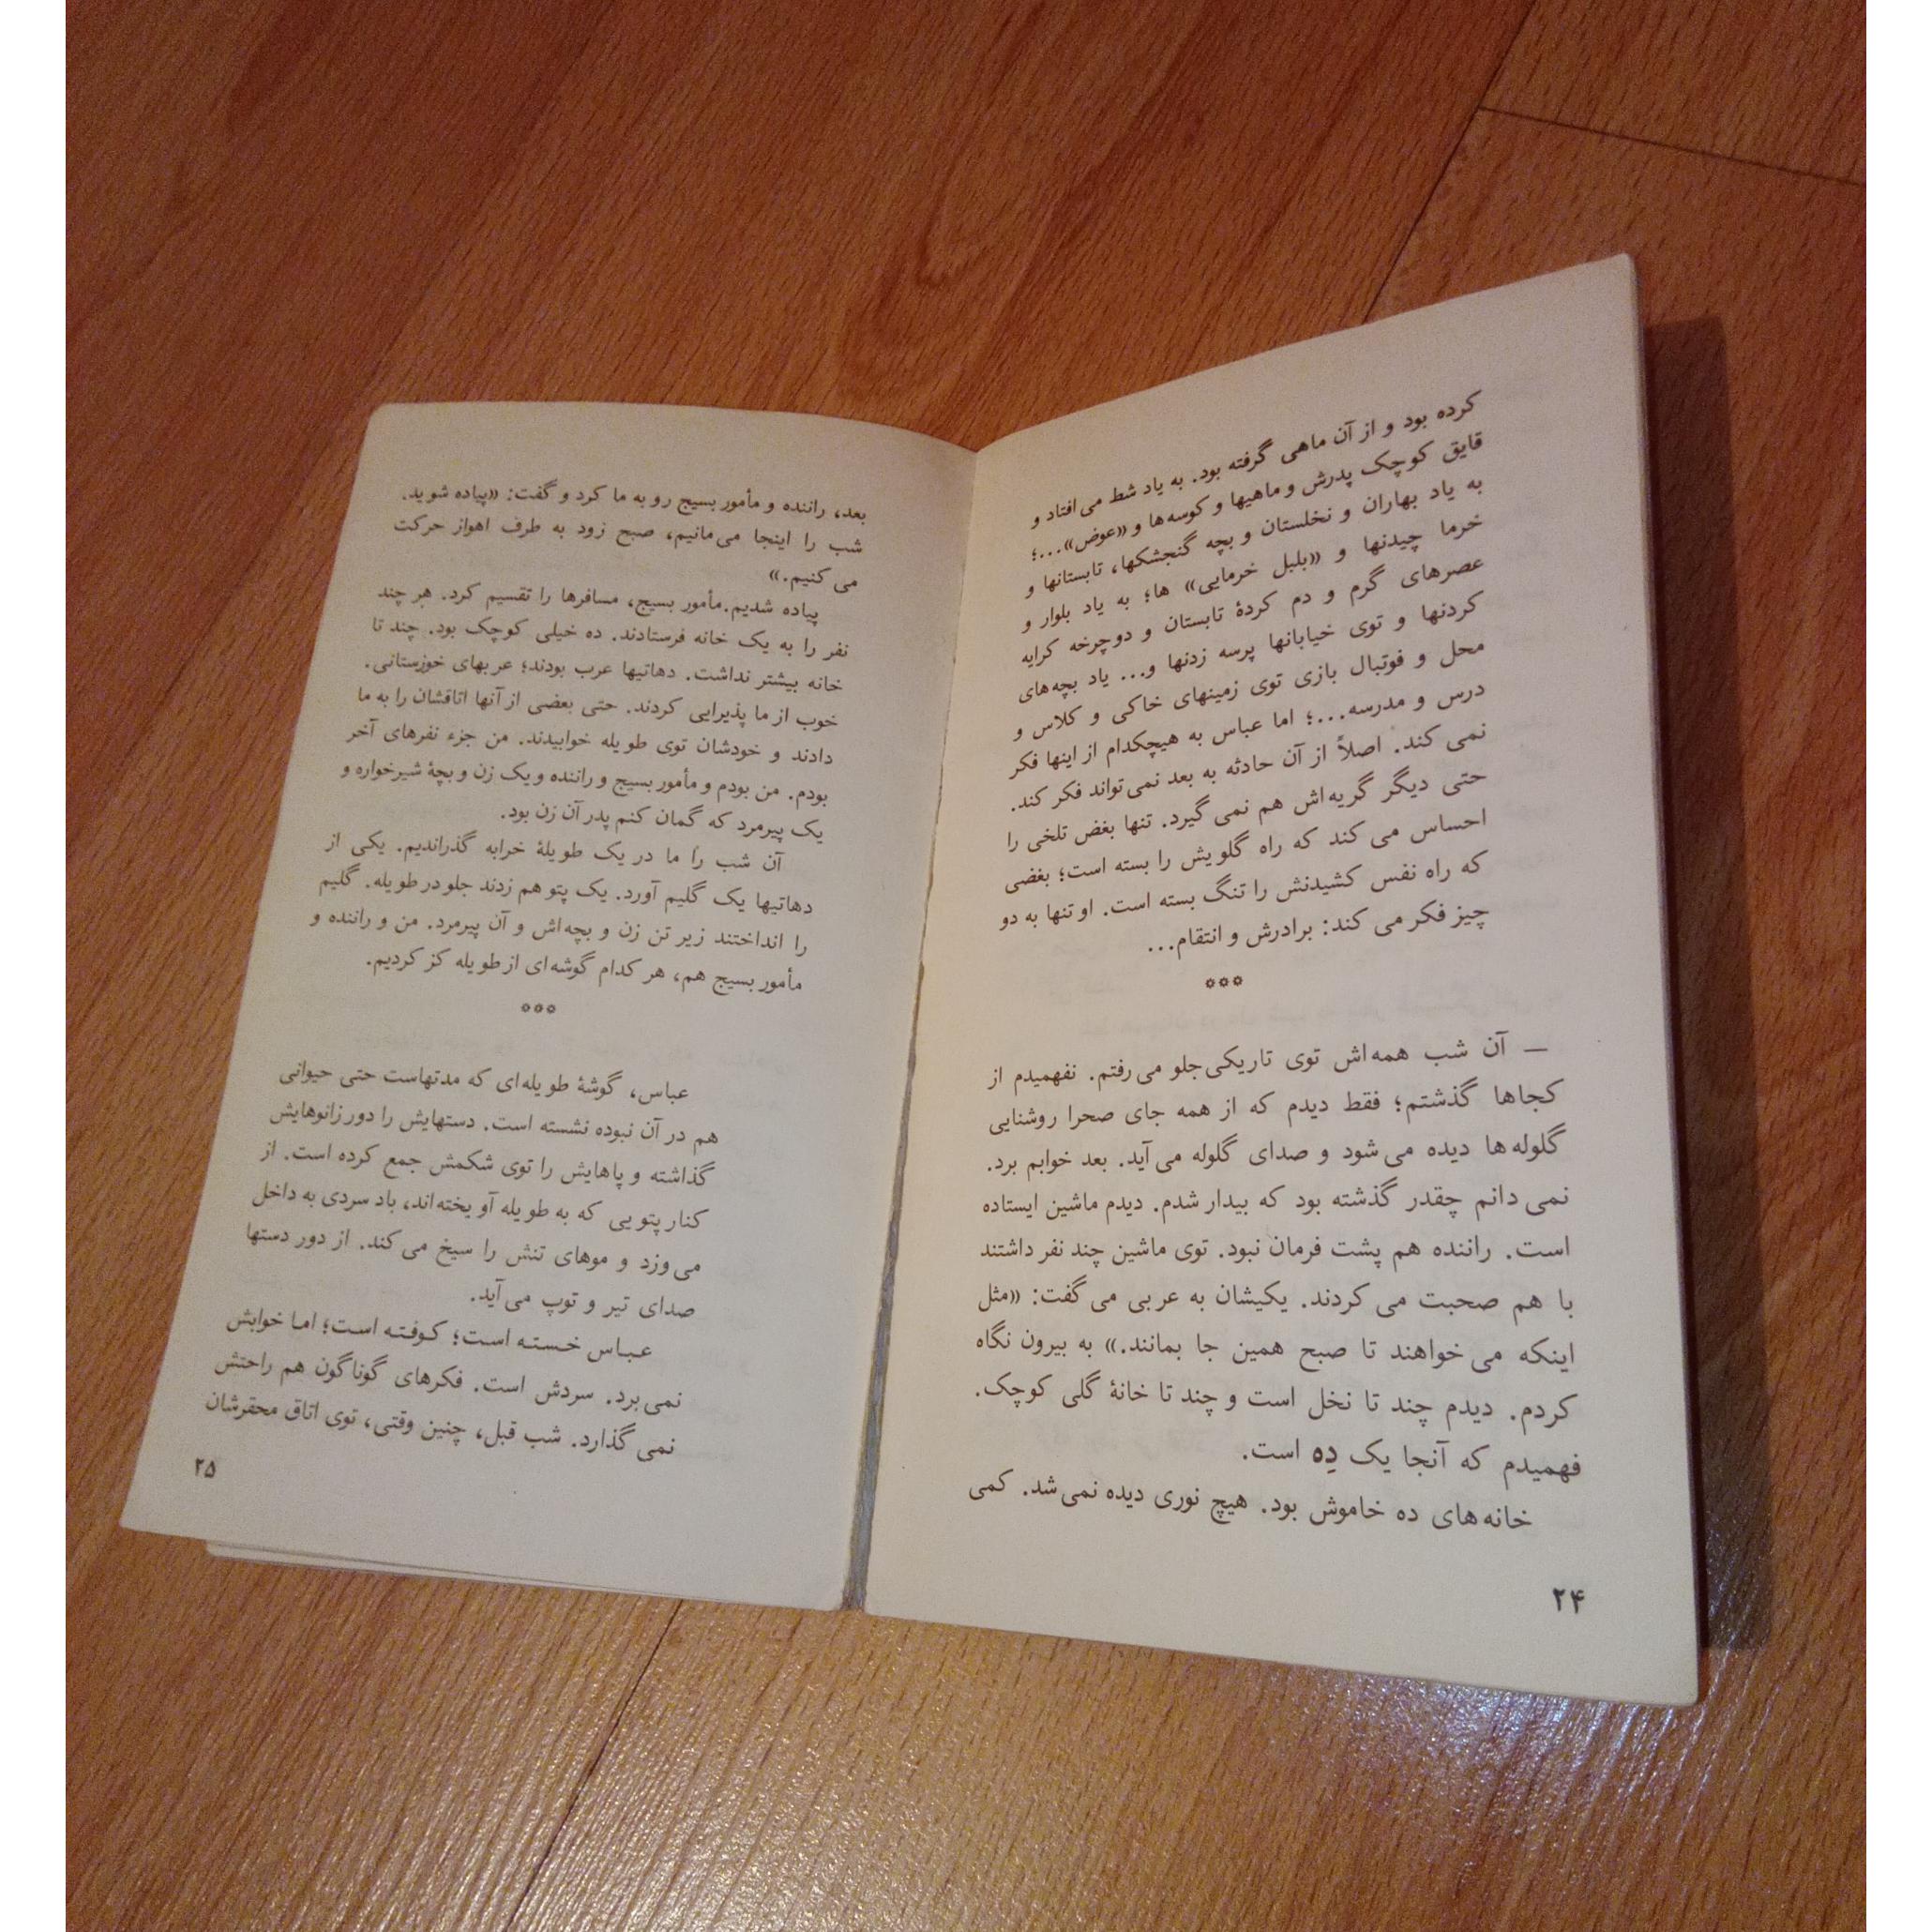 کرده بود و از آن ماهی گرفته بود. به یاد شط می‌افتاد و
قایق کوچک پدرش و ماهیها و کوسه‌ها و «عوض»...؛
به یاد بهاران و نخلستان و بچه گنجشکها، تابستانها و
خرما چیدنها و «بلبل خرمایی» ها؛ به یاد بلوار و
عصرهای گرم و دم کردهٔ تابستان و دوچرخه کرایه
کردنها و توی خیابانها پرسه زدنها و... یاد بچه‌های
محل و فوتبال بازی توی زمینهای خاکی و کلاس و
درس و مدرسه...؛ اما عباس به هیچکدام از اینها فکر
نمی‌کند. اصلاً از آن حادثه به بعد نمی‌تواند فکر کند.
حتی دیگر گریه‌اش هم نمی‌گیرد. تنها بغض تلخی را
احساس می‌کند که راه گلویش را بسته است؛ بغضی
که راه نفس کشیدنش را تنگ بسته است. او تنها به دو
چیز فکر می‌کند: برادرش و انتقام...
***
— آن شب همه‌اش توی تاریکی جلو می‌رفتم. نفهمیدم از
کجاها گذشتم؛ فقط دیدم که از همه جای صحرا روشنایی
گلوله‌ها دیده می‌شود و صدای گلوله می‌آید. بعد خوابم برد.
نمی‌دانم چقدر گذشته بود که بیدار شدم. دیدم ماشین ایستاده
است. راننده هم پشت فرمان نبود. توی ماشین چند نفر داشتند
با هم صحبت می‌کردند. یکیشان به عربی می‌گفت: «مثل
اینکه می‌خواهند تا صبح همین جا بمانند.» به بیرون نگاه
کردم. دیدم چند تا نخل است و چند تا خانهٔ گلی کوچک.
فهمیدم که آنجا یک دِه است.
خانه‌های ده خاموش بود. هیچ نوری دیده نمی‌شد. کمی
۲۴
بعد، راننده و مأمور بسیج رو به ما کرد و گفت: «پیاده شوید.
شب را اینجا می‌مانیم، صبح زود به طرف اهواز حرکت
می‌کنیم.»
پیاده شدیم. مأمور بسیج، مسافرها را تقسیم کرد. هر چند
نفر را به یک خانه فرستادند. ده خیلی کوچک بود. چند تا
خانه بیشتر نداشت. دهاتیها عرب بودند؛ عربهای خوزستانی.
خوب از ما پذیرایی کردند. حتی بعضی از آنها اتاقشان را به ما
دادند و خودشان توی طویله خوابیدند. من جزء نفرهای آخر
بودم. من بودم و مأمور بسیج و راننده و یک زن و بچهٔ شیرخواره و
یک پیرمرد که گمان کنم پدر آن زن بود.
آن شب را ما در یک طویلهٔ خرابه گذراندیم. یکی از
دهاتیها یک گلیم آورد. یک پتو هم زدند جلو در طویله. گلیم
را انداختند زیر تن زن و بچه‌اش و آن پیرمرد. من و راننده و
مأمور بسیج هم، هر کدام گوشه‌ای از طویله کز کردیم.
***
عباس، گوشهٔ طویله‌ای که مدتهاست حتی حیوانی
هم در آن نبوده نشسته است. دستهایش را دور زانوهایش
گذاشته و پاهایش را توی شکمش جمع کرده است. از
کنار پتویی که به طویله آویخته‌اند، باد سردی به داخل
می‌وزد و موهای تنش را سیخ می‌کند. از دور دستها
صدای تیر و توپ می‌آید.
عباس خسته است؛ کوفته است؛ اما خوابش
نمی‌برد. سردش است. فکرهای گوناگون هم راحتش
نمی‌گذارد. شب قبل، چنین وقتی، توی اتاق محقرشان
۲۵